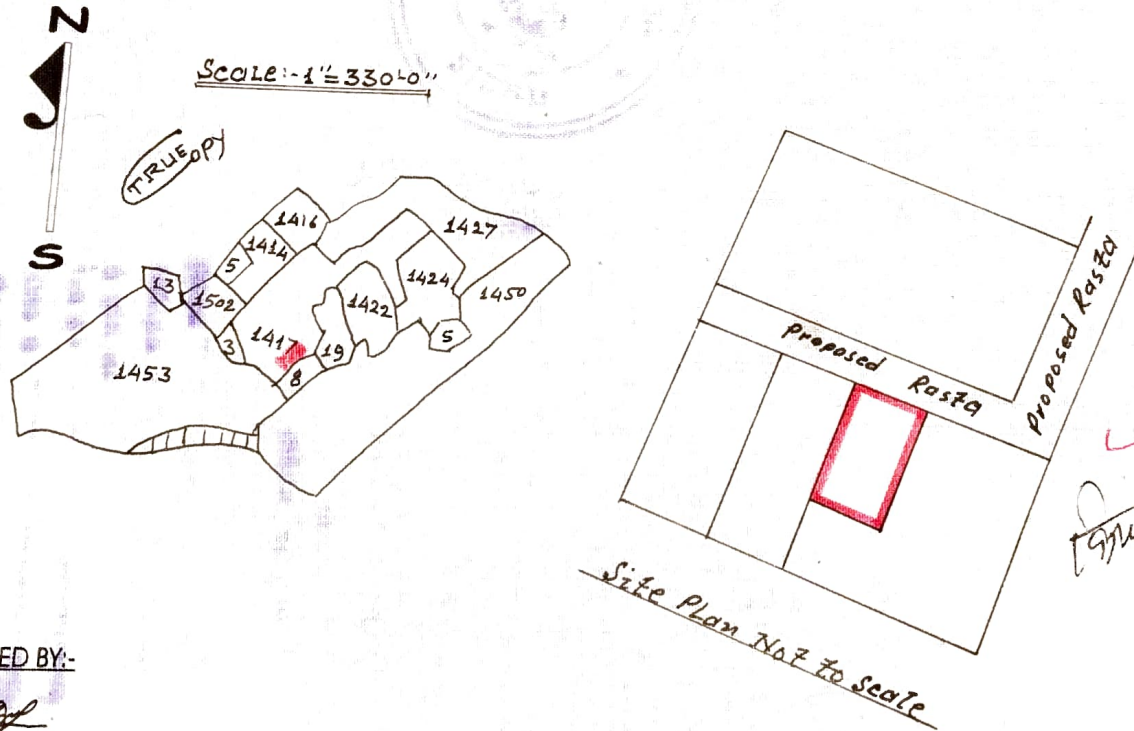 N
Scale:- 1"=330'-0"
TRUE COPY
S
1416
1427
1414
5
1424
13
1502
1450
1422
1417
5
3
19
8
1453
Proposed Rasta
Proposed Rasta
Site Plan Not to Scale
ED BY:-